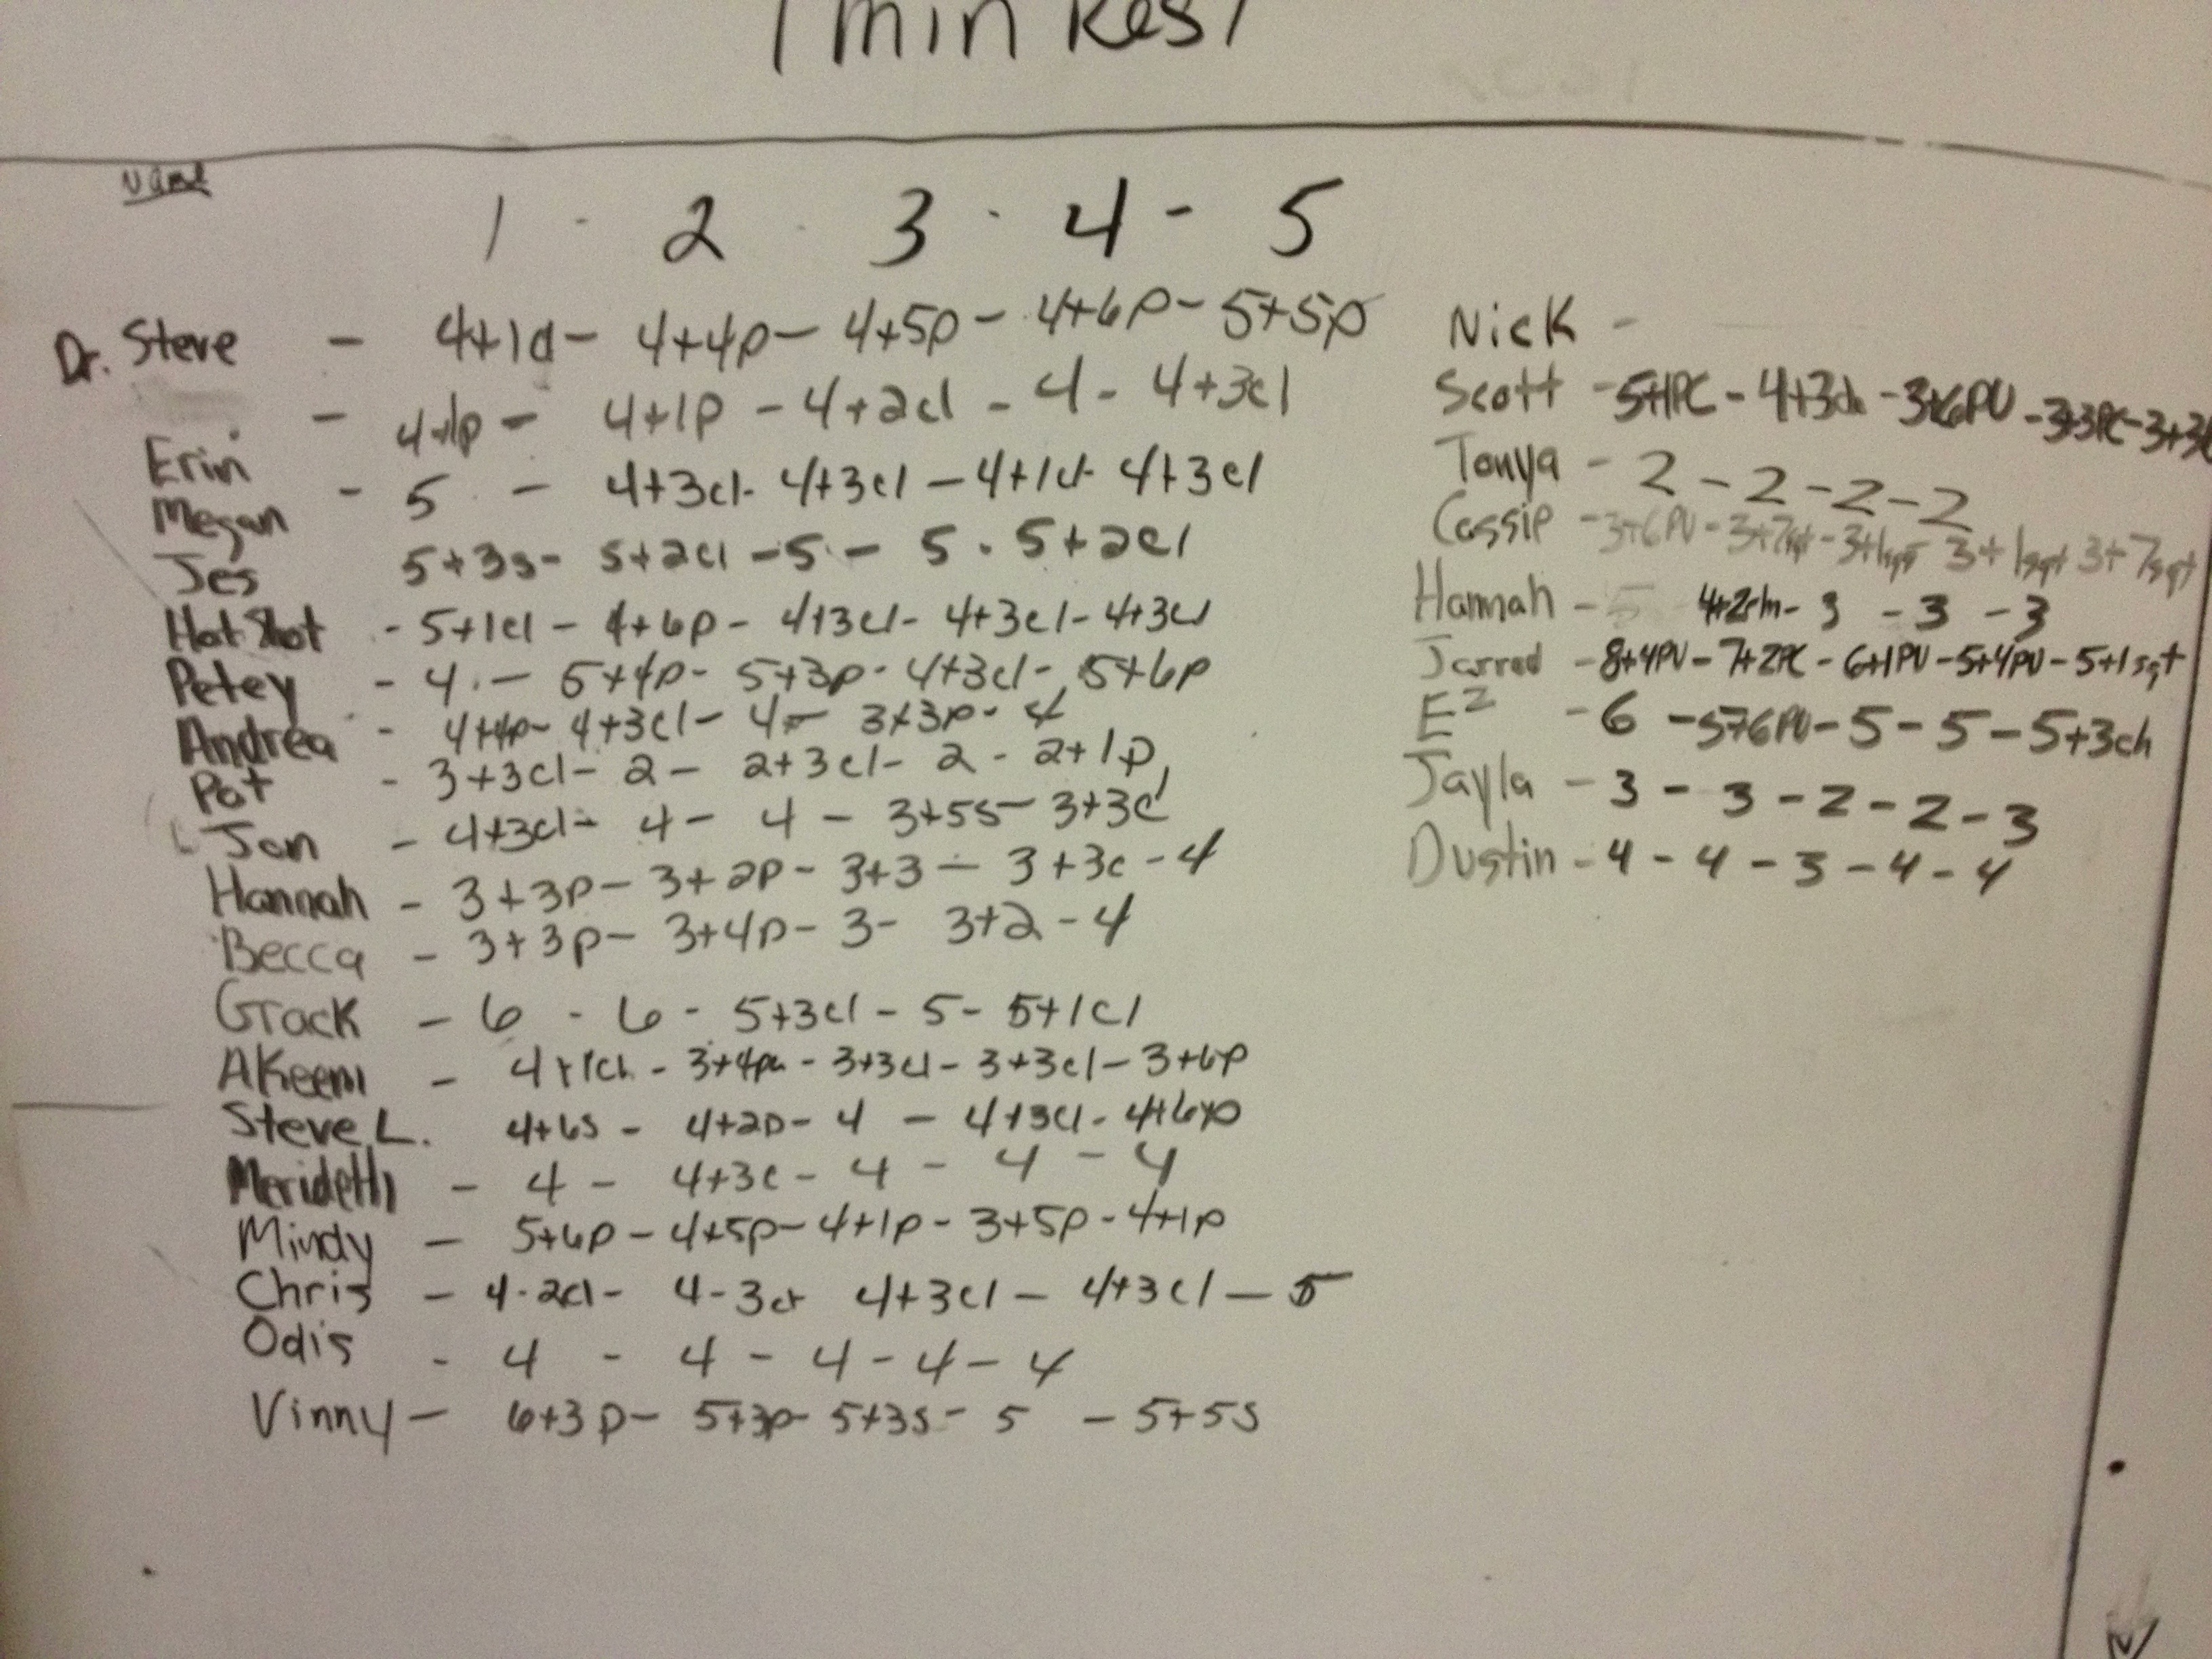 1 min Rest
Name
1 - 2 - 3 - 4 - 5
Dr. Steve - 4+1cl - 4+4p - 4+5p - 4+6p - 5+5p
Erin - 4+1p - 4+1p - 4+2cl - 4 - 4+3cl
Megan - 5 - 4+3cl - 4+3cl - 4+1cl - 4+3cl
Jes 5+3s - 5+2cl - 5 - 5 - 5+2cl
Hot Shot - 5+1cl - 4+6p - 4+3cl - 4+3cl - 4+3cl
Petey - 4 - 5+4p - 5+3p - 4+3cl - 5+6p
Andrea - 4+4p - 4+3cl - 4 - 3+3p - 4
Pat - 3+3cl - 2 - 2+3cl - 2 - 2+1p
Jon - 4+3cl - 4 - 4 - 3+5s - 3+3cl
Hannah - 3+3p - 3+2p - 3+3 - 3+3c - 4
Becca - 3+3p - 3+4p - 3 - 3+2 - 4
Grack - 6 - 6 - 5+3cl - 5 - 5+1cl
AKeem - 4+1cl - 3+4pu - 3+3cl - 3+3cl - 3+6p
Steve L. 4+6s - 4+2p - 4 - 4+3cl - 4+6p
Merideth - 4 - 4+3c - 4 - 4 - 4
Mindy - 5+6p - 4+5p - 4+1p - 3+5p - 4+1p
Chris - 4-2cl - 4-3cl 4+3cl - 4+3cl - 5
Odis - 4 - 4 - 4 - 4 - 4
Vinny - 6+3p - 5+3p - 5+3s - 5 - 5+5s
Nick -
Scott - 5+1PC - 4+3cln - 3+6PU - 3+3PC - 3+3
Tonya - 2 - 2 - 2 - 2
Cassie - 3+6PU - 3+7sqt - 3+1sqt 3+1sqt 3+7sqt
Hannah - 5 4+2cln - 3 - 3 - 3
Jarred - 8+4PU - 7+2PC - 6+1PU - 5+4PU - 5+1sqt
E² - 6 - 5+6PU - 5 - 5 - 5+3ch
Jayla - 3 - 3 - 2 - 2 - 3
Dustin - 4 - 4 - 3 - 4 - 4